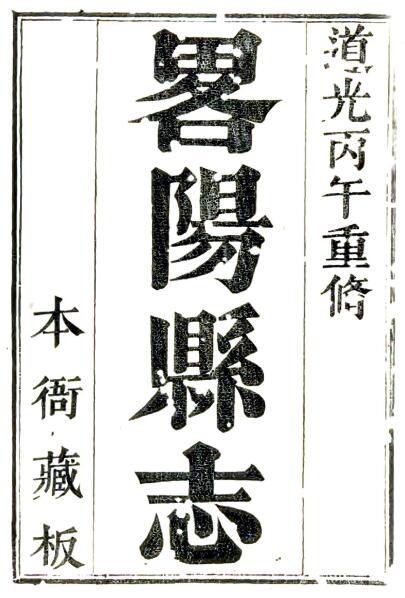 道光丙午重脩
畧陽縣志
本衙藏板